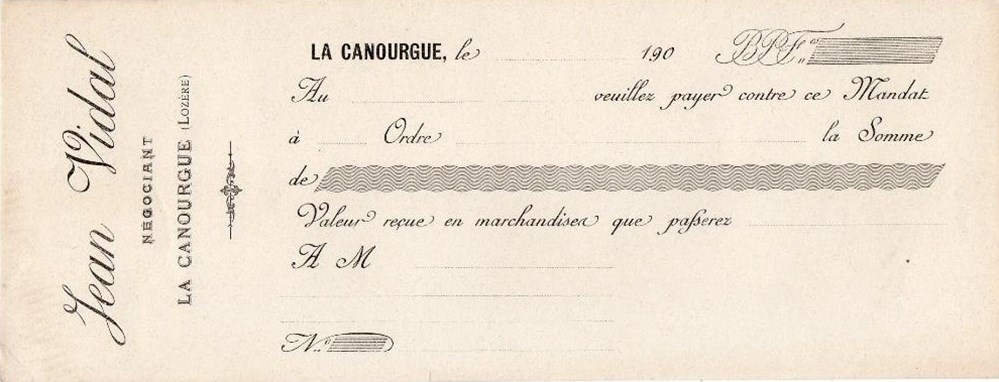 Jean Vidal
NÉGOCIANT
LA CANOURGUE (LOZÈRE)
LA CANOURGUE, le 190 B.P.F.
Au veuillez payer contre ce Mandat
à Ordre la Somme
de
Valeur reçue en marchandises que passerez
A M
N.º